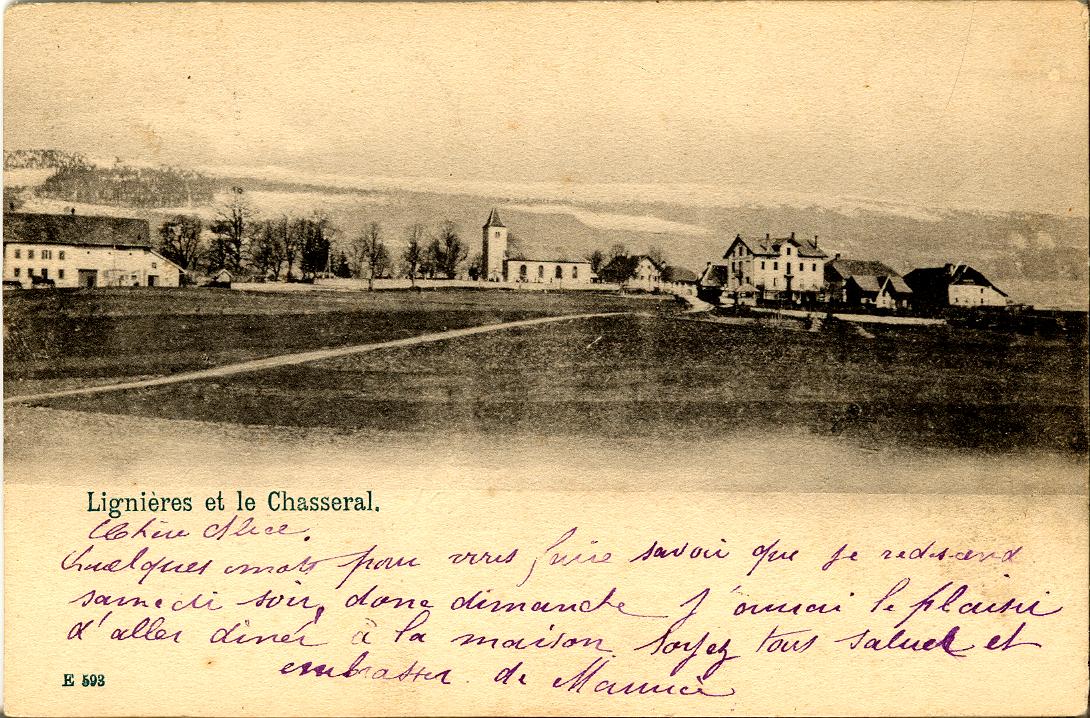 Lignières et le Chasseral.
Chère Alice.
Quelques mots pour vous faire savoir que je redescend
samedi soir, donc dimanche j'aurai le plaisir
d'aller diner à la maison. soyez tous saluer et
embrasser. de Maurice
E 593